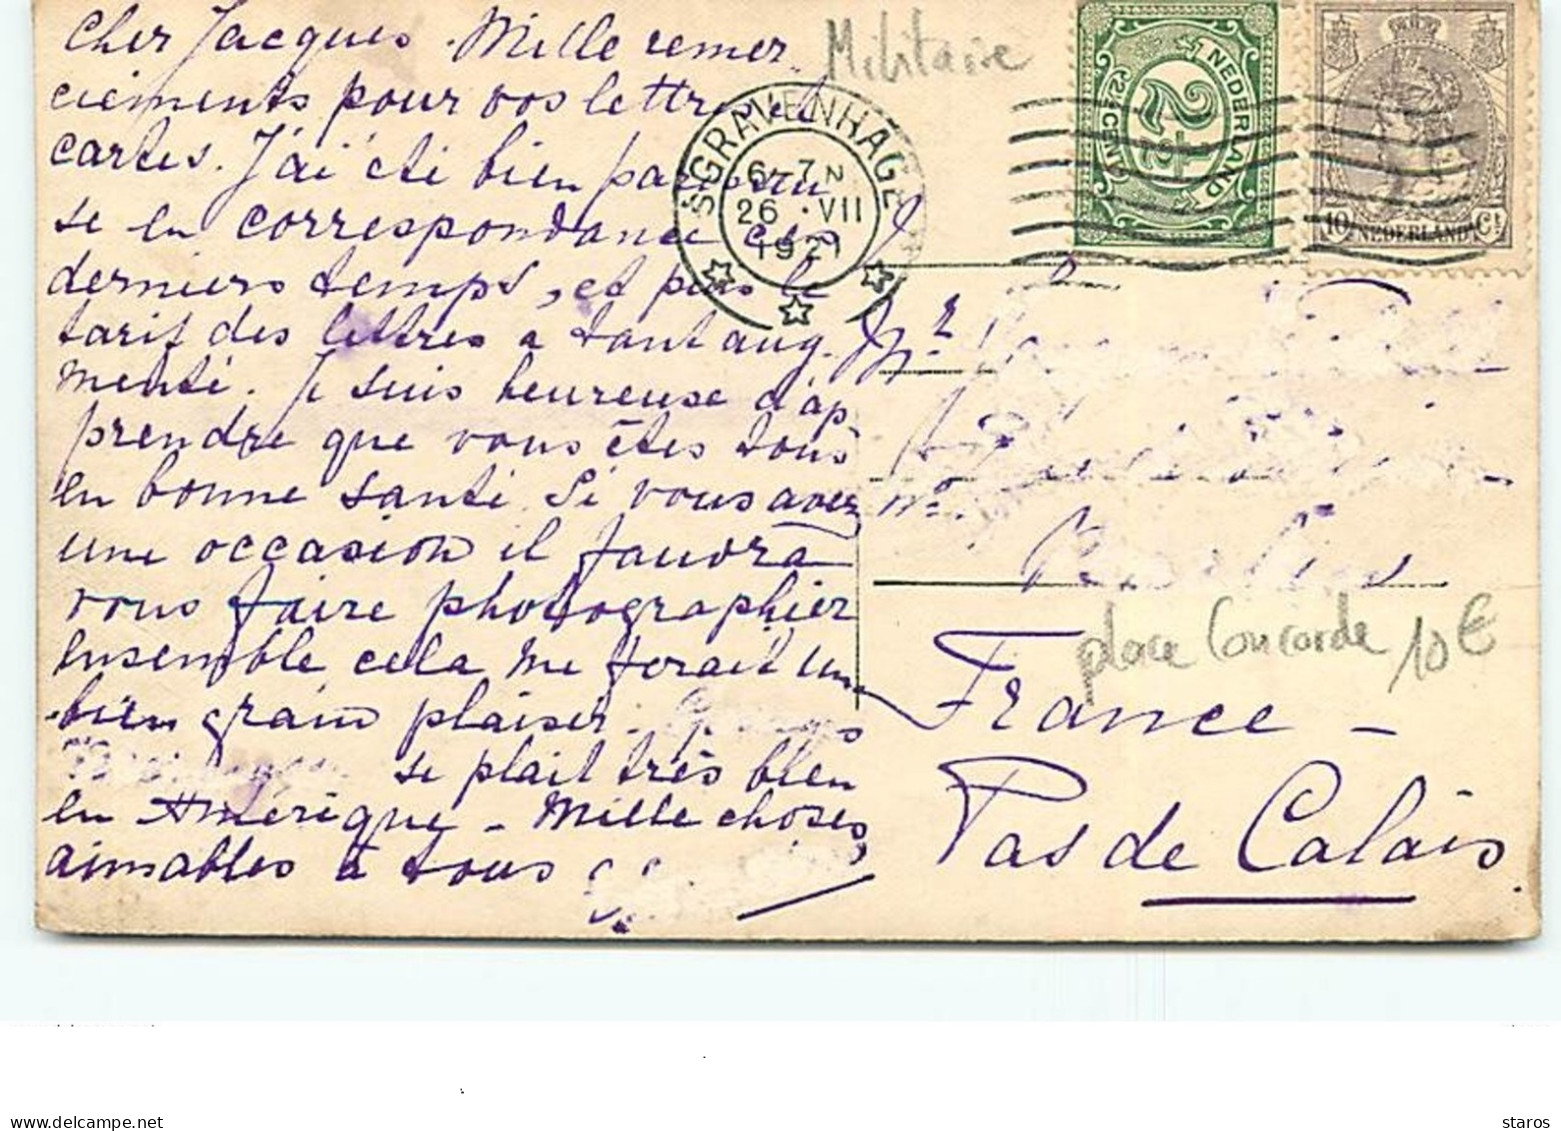 Cher Jacques. Mille remer
ciements pour vos lettres et
cartes. J'ai été bien paresseu
se en correspondance ces
derniers temps, et puis le
tarif des lettres a tant aug.
menté. Je suis heureuse d'ap
prendre que vous êtes tous
en bonne santé. Si vous avez
une occasion il faudra
vous faire photographier
ensemble cela me ferait un
bien grand plaisir.
se plait très bien
en Amérique - Mille choses
aimables à tous
Militaire
'S GRAVENHAGE
6-7 N
26 VII
1921
NEDERLAND
2½
2½ CENT
10 NEDERLAND Ct
Mr
place Concorde 10€
France -
Pas de Calais.
www.delcampe.net
staros